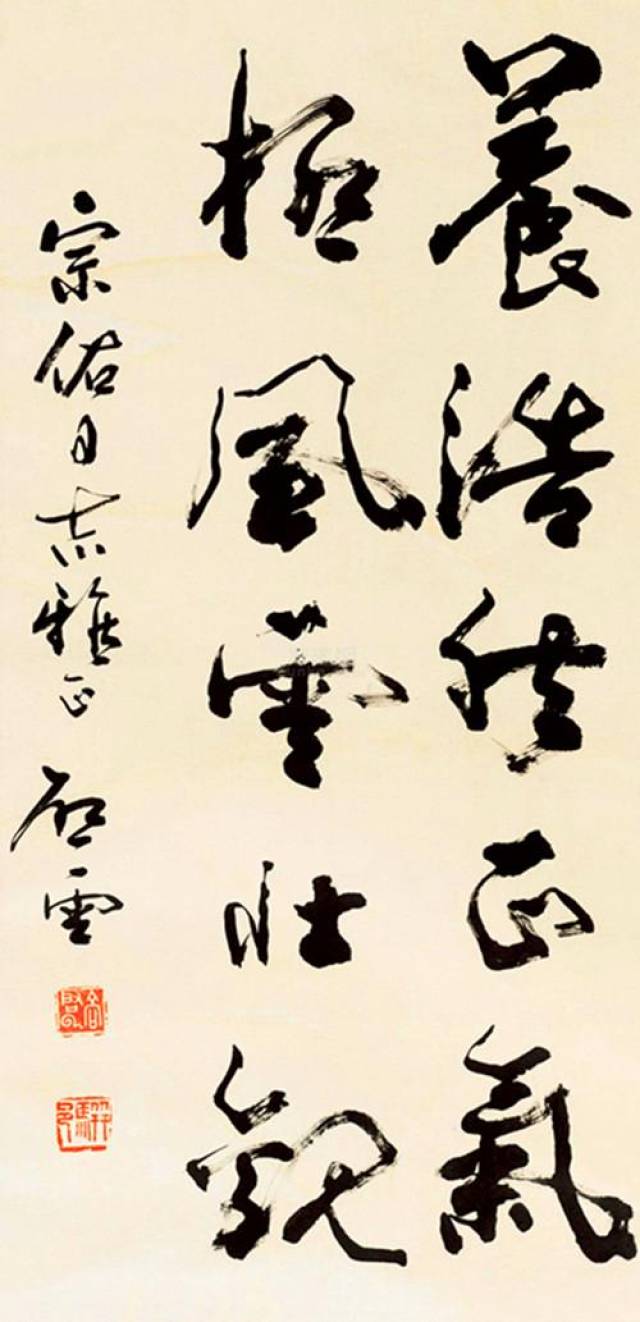 養浩然正氣
極風雲壯觀
宗佑同志雅正
啟雲